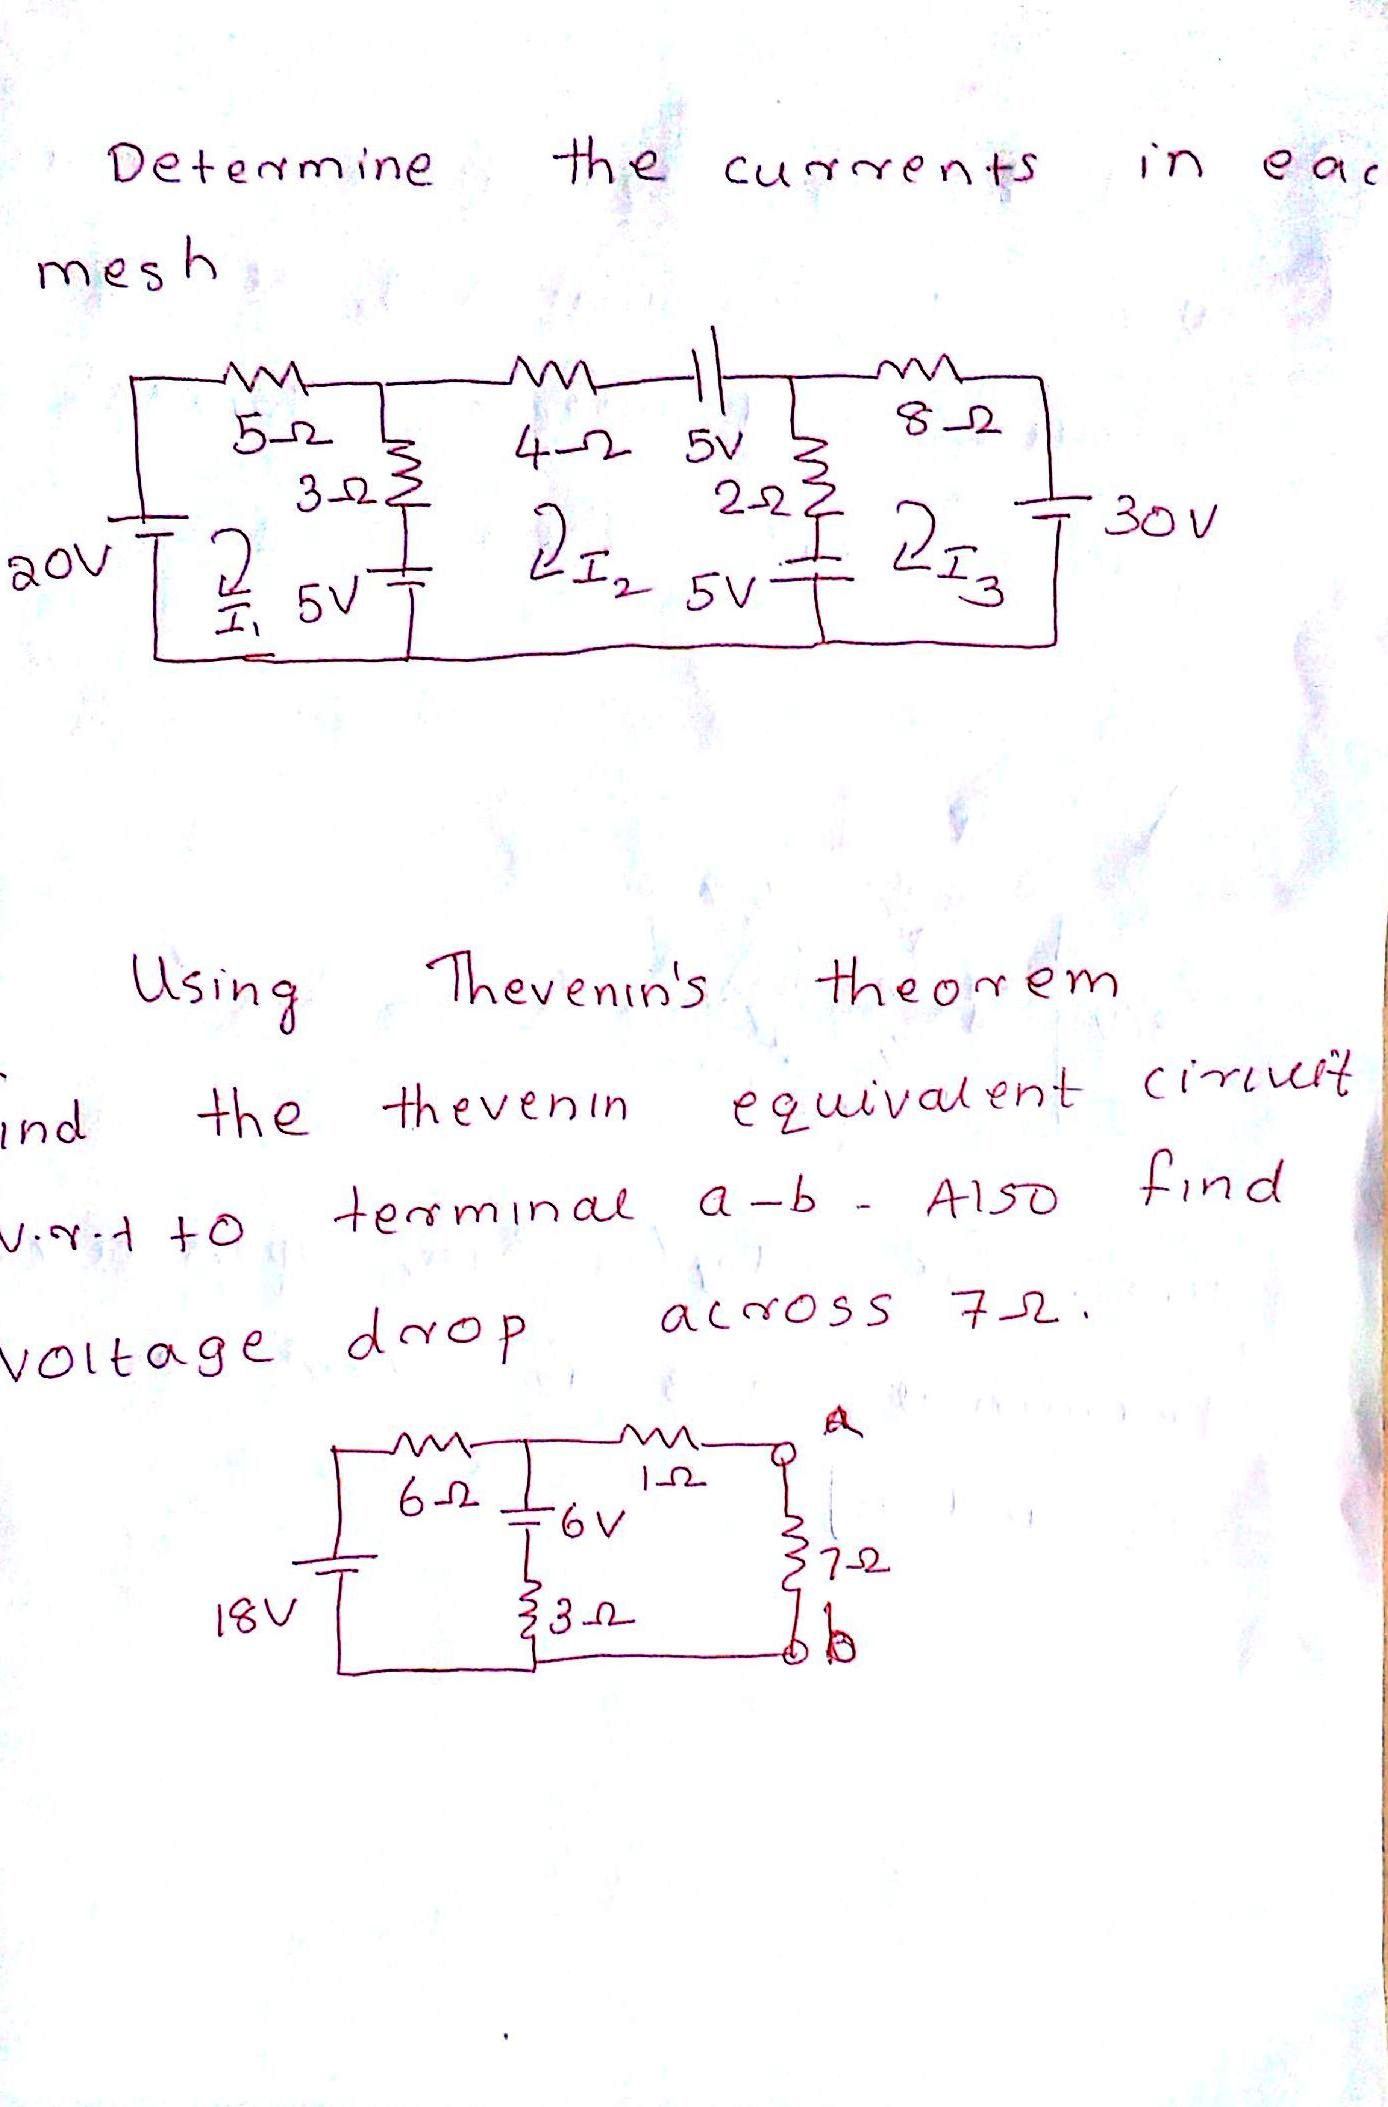 Determine the currents in eac
mesh
5Ω 4Ω 5V 8Ω
3Ω 2Ω 30V
20V I1 5V I2 5V I3
Using Thevenin's theorem
ind the thevenin equivalent circuit
w.r.t to terminal a-b. Also find
voltage drop across 7Ω.
a
6Ω 6V 1Ω
7Ω
18V 3Ω b